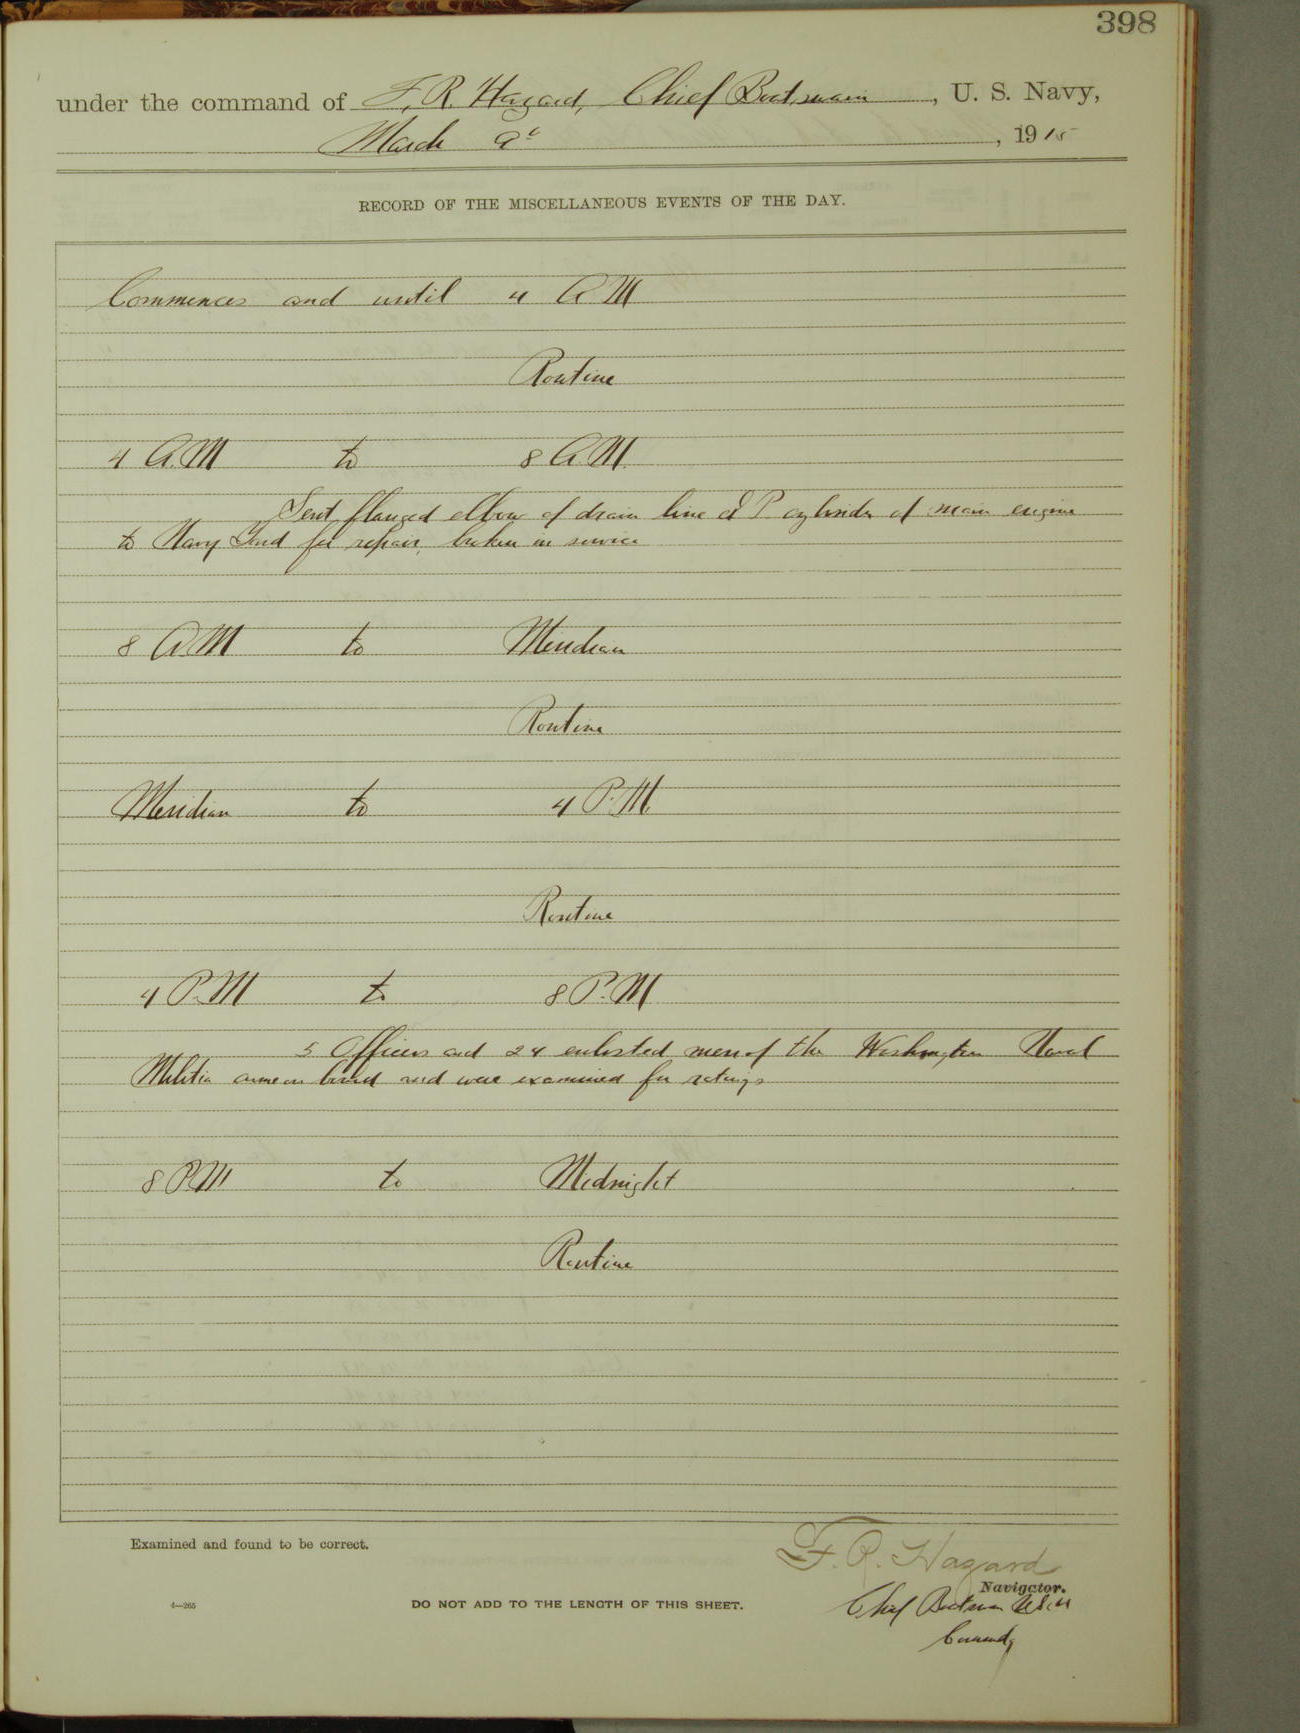 398
under the command of F. R. Hazard, Chief Boatswain, U. S. Navy,
March 9th, 1915
RECORD OF THE MISCELLANEOUS EVENTS OF THE DAY.
Commences and until 4 A M
Routine
4 A.M to 8 A M.
Sent flanged elbow of drain line P cylinder of main engine
to Navy Yard for repair, broken in service
8 A.M to Meridian
Routine
Meridian to 4 P.M.
Routine
4 P.M to 8 P.M
5 Officers and 24 enlisted men of the Washington Naval
Militia came on board and were examined for ratings
8 P.M to Midnight
Routine
Examined and found to be correct.
F. R. Hazard
Navigator.
4—265
DO NOT ADD TO THE LENGTH OF THIS SHEET.
Chief Boatswain U.S.N
Commdg